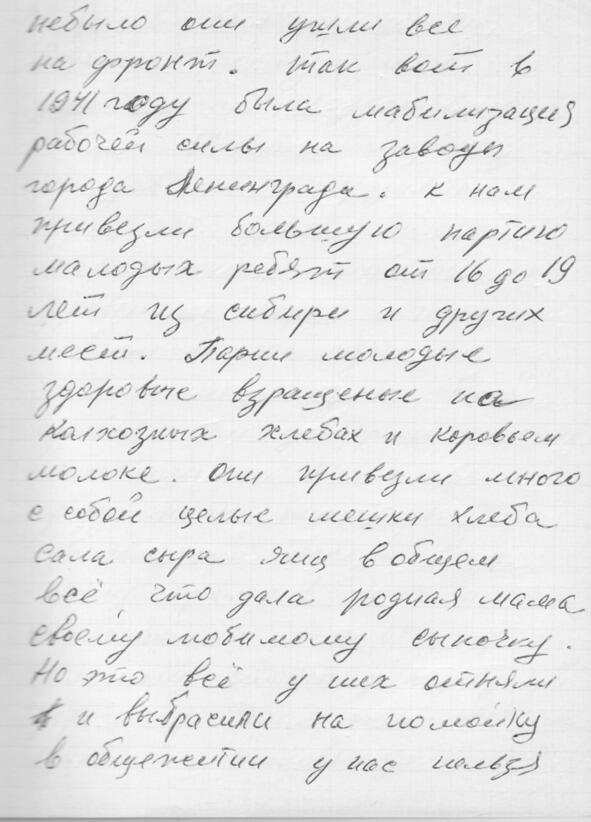 небыло они ушли все
на фронт. так вот в
1941 году была мабилизация
рабочей силы на заводы
города Ленинграда. к нам
привезли большую партию
малодых ребят от 16 до 19
лет из сибири и других
мест. Парни молодые
здоровые взращеные на
колхозных хлебах и коровьем
молоке. они привезли много
с собой целые мешки хлеба
сала сыра яиц в общем
всё что дала родная мама
своему любимому сыночку.
Но это всё у них отняли
и выбрасили на помойку
в общежитии у нас нельзя